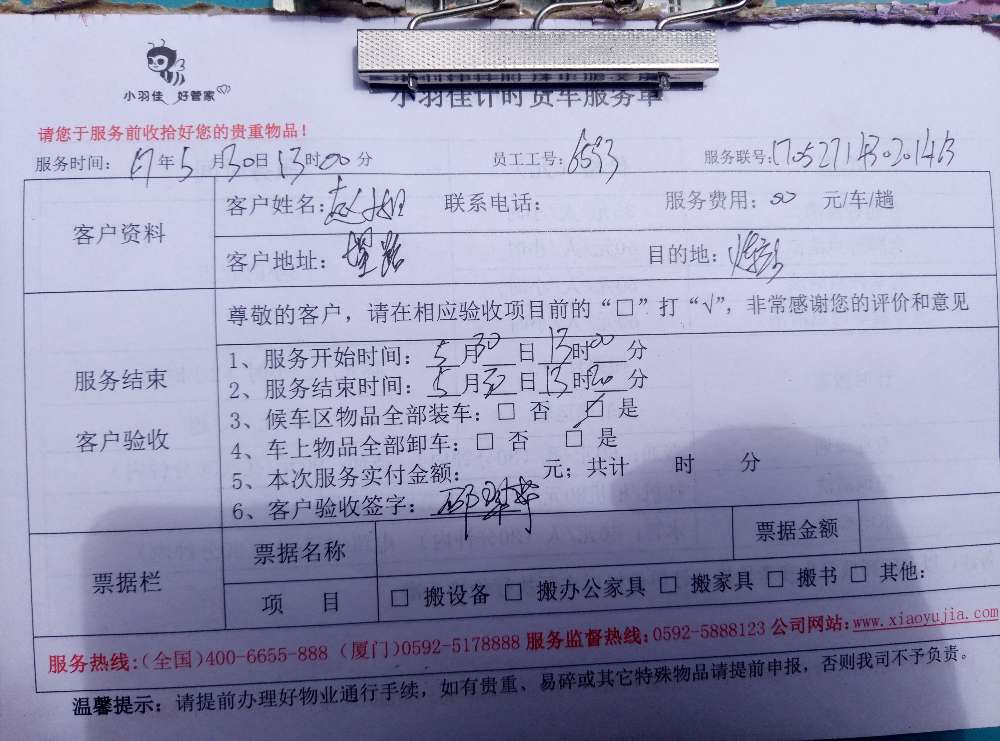 小羽佳 好管家
小羽佳计时货车服务单
请您于服务前收拾好您的贵重物品！
服务时间：17年5月30日13时00分 员工工号：6593 服务联号：
客户资料
客户姓名：赵小姐 联系电话： 服务费用： 元/车/趟
客户地址： 目的地：
服务结束
客户验收
尊敬的客户，请在相应验收项目前的“□”打“√”，非常感谢您的评价和意见
1、服务开始时间：5月30日13时00分
2、服务结束时间：5月30日13时20分
3、候车区物品全部装车：□ 否 ☑ 是
4、车上物品全部卸车：□ 否 □ 是
5、本次服务实付金额： 元；共计 时 分
6、客户验收签字：
票据栏
票据名称 票据金额
项 目 □ 搬设备 □ 搬办公家具 □ 搬家具 □ 搬书 □ 其他：
服务热线：（全国）400-6655-888（厦门）0592-5178888 服务监督热线：0592-5888123 公司网站：www.xiaoyujia.com
温馨提示：请提前办理好物业通行手续，如有贵重、易碎或其它特殊物品请提前申报，否则我司不予负责。